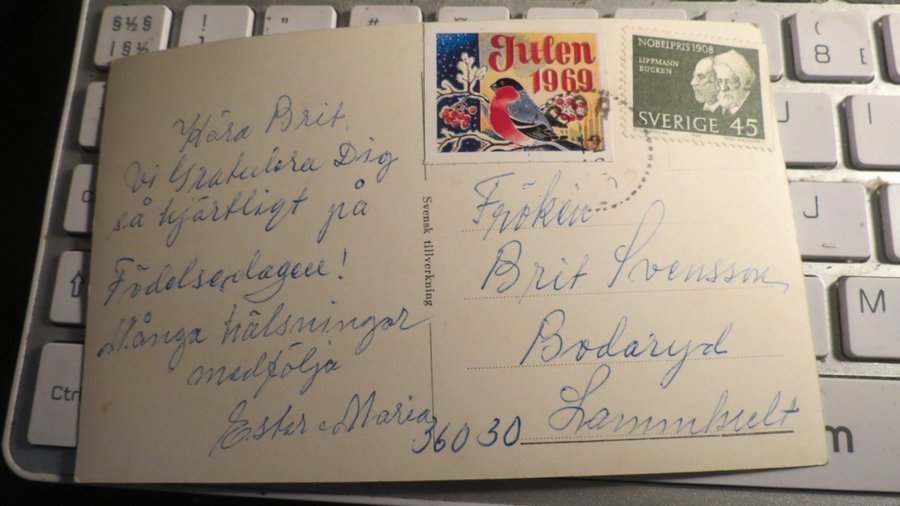 Kära Brit,
Vi Gratulera Dig
så hjärtligt på
Födelsedagen!
Många hälsningar
medfölja
Ester Maria
Svensk tillverkning
Julen
1969
NOBELPRIS 1908
LIPPMANN
EUCKEN
SVERIGE 45
Fröken
Brit Svensson
Bodaryd
Lammhult
360 30
§½§
|§½
!
1
#
(
8
J
M
Ctr
m